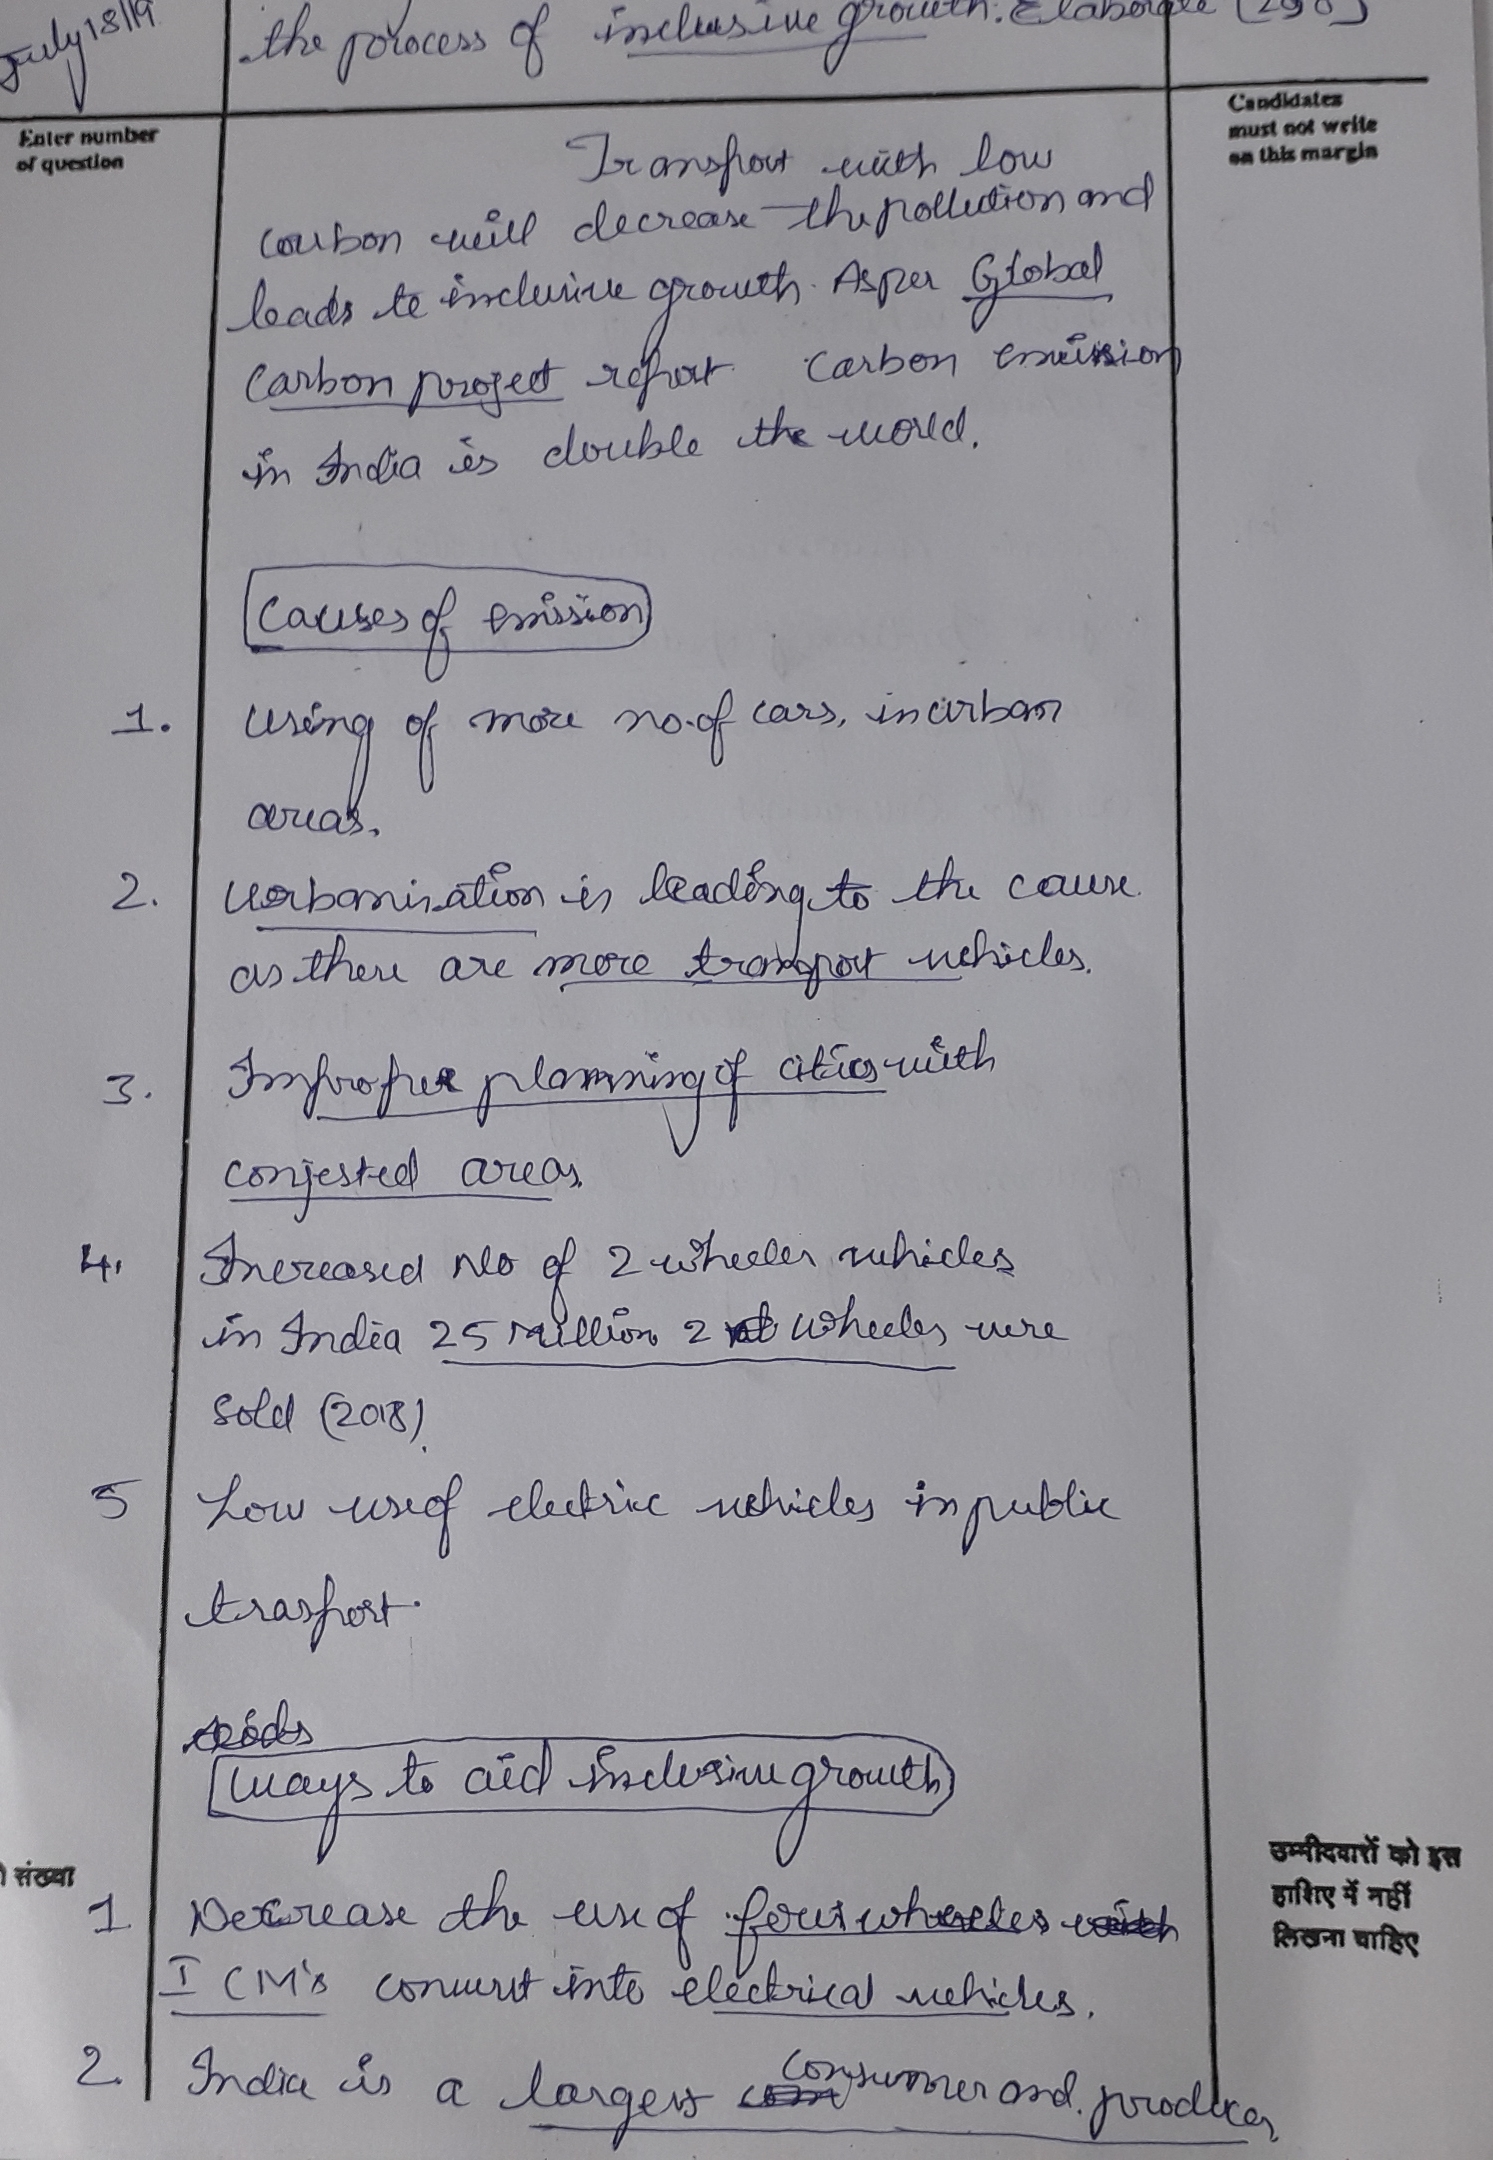 July 18/19
the process of inclusive growth. Elaborate (250)
Enter number
of question
Candidates
must not write
on this margin
Transport with low
carbon will decrease the pollution and
leads to inclusive growth. As per Global
Carbon project report carbon emission
in India is double the world.
Causes of emission
1. Using of more no. of cars, in urban
areas.
2. Urbanisation is leading to the cause
as there are more transport vehicles.
3. Improper planning of cities with
conjested areas.
4. Increased No of 2 wheeler vehicles
in India 25 Million 2 wheeles were
sold (2018).
5 Low use of electric vehicles in public
trasport.
Ways to aid inclusive growth
संख्या
उम्मीदवारों को इस
हाशिए में नहीं
लिखना चाहिए
1 Decrease the use of four wheeles with
I CM's convert into electrical vehicles.
2. India is a largers consumer and producer